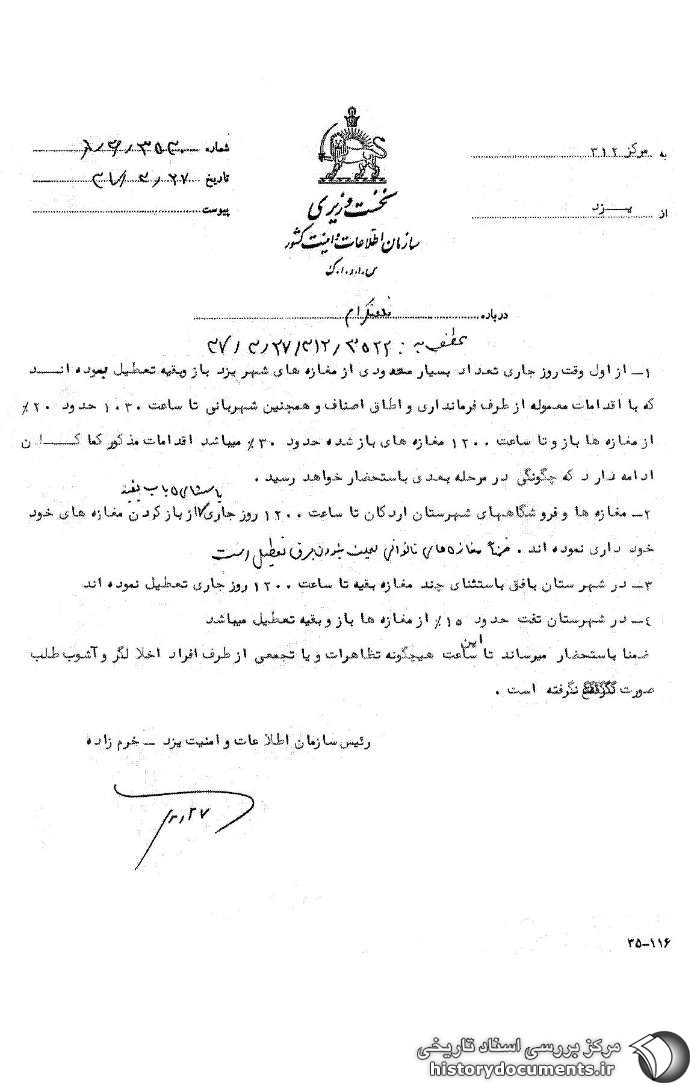 به مرکز ۳۱۲
از یـــزد
نخست وزیری
سازمان اطلاعات و امنیت کشور
س.ا.و.ا.ک
شماره
تاریخ
پیوست
درباره
عطف به : ۳۵۲۲ / ۳۱۲
۱ــ از اول وقت روز جاری تعداد بسیار معدودی از مغازه های شهر یزد باز وبقیه تعطیل بموده انـــد
که با اقدامات معموله از طرف فرمانداری و اطاق اصناف و همچنین شهربانی تا ساعت ۱۰۳۰ حدود ۲۰٪
از مغازه ها باز و تا ساعت ۱۲۰۰ مغازه های باز شده حدود ۳۰٪ میباشد اقدامات مذکور کما کــــان
ادامه دارد که چگونگی در مرحله بعدی باستحضار خواهد رسید .
باستثنای ۵ باب بقیه
۲ــ مغازه ها و فروشگاههای شهرستان اردکان تا ساعت ۱۲۰۰ روز جاری از باز کردن مغازه های خود
خود داری نموده اند . ضمناً مغازه های نانوائی بعلت نبودن برق تعطیل است
۳ــ در شهر ستان بافق باستثنای چند مغازه بقیه تا ساعت ۱۲۰۰ روز جاری تعطیل نموده اند
٤ــ در شهرستان تفت حدود ۱۵٪ از مغازه ها باز و بقیه تعطیل میباشد
ضمنا باستحضار میرساند تا این ساعت هیچگونه تظاهرات و یا تجمعی از طرف افراد اخلا لگر و آشوب طلب
صورت نگرفته است .
رئیس سازمان اطلا عات و امنیت یزد ــ خرم زاده
۳۵-۱۱۶
مرکز بررسی اسناد تاریخی
historydocuments.ir